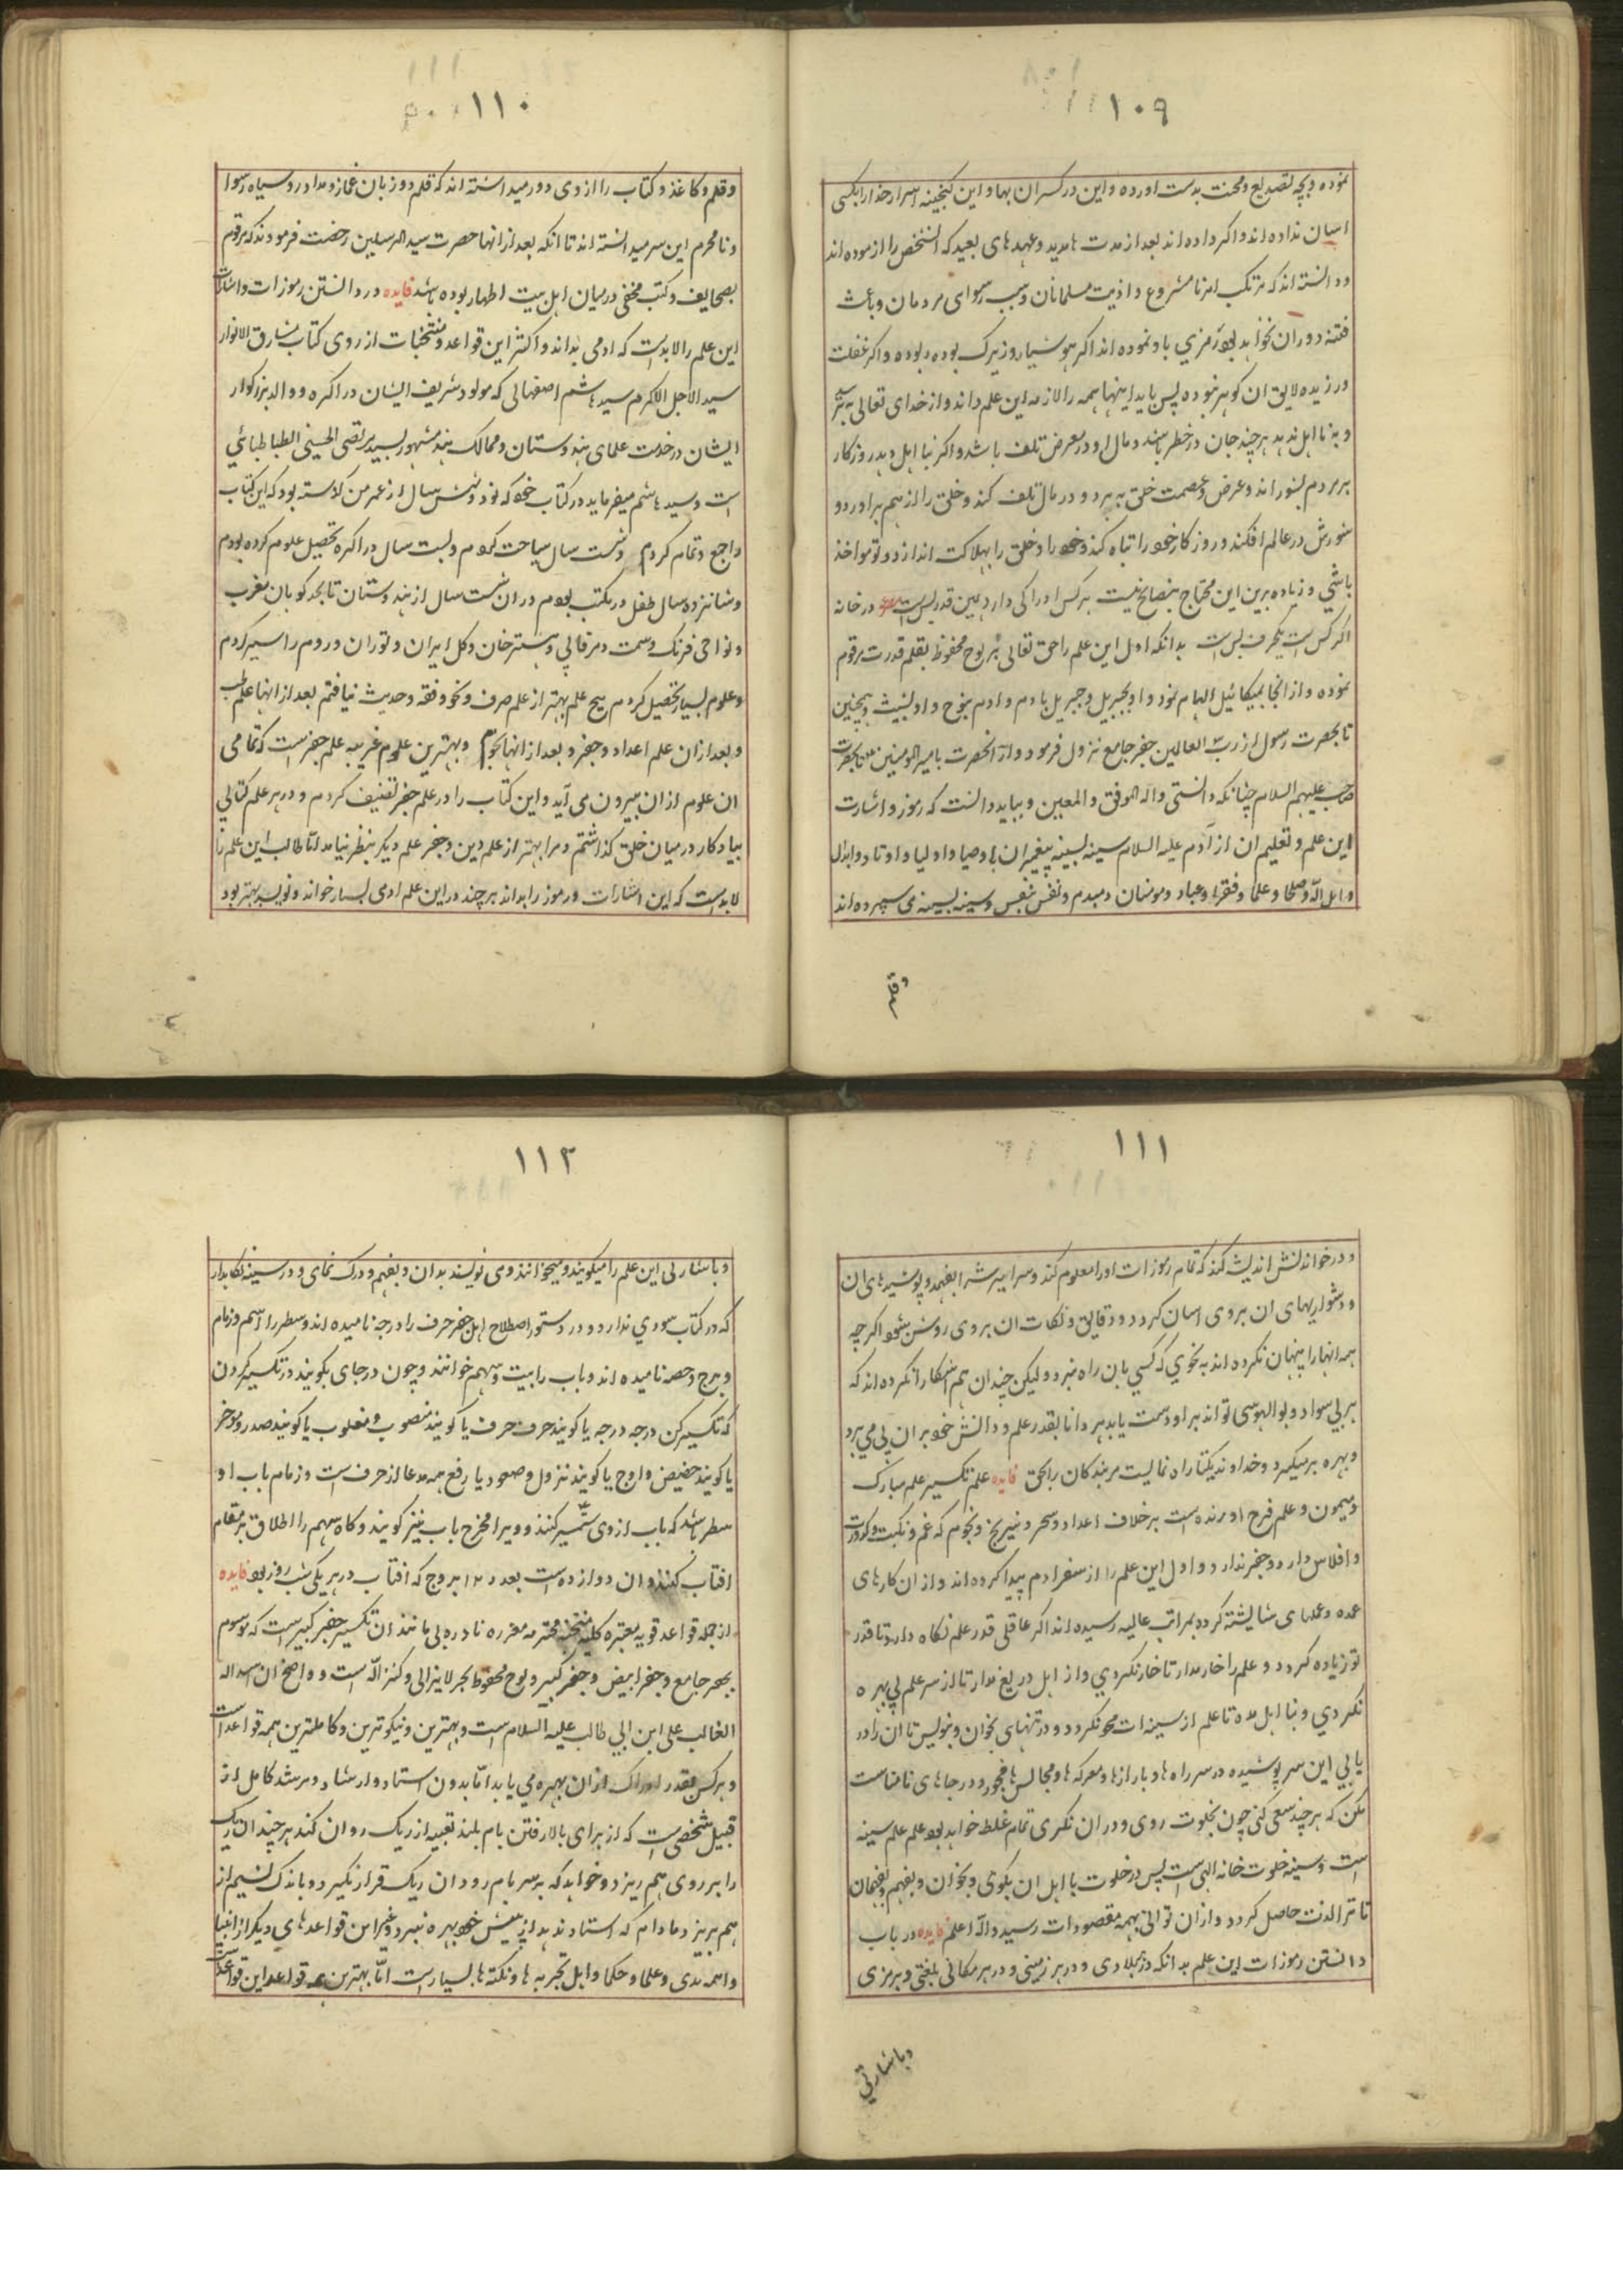 ۱۰۹
نموده و بچه تصدیع و محنت بدست اورده و این در کسران بها و این کنجینه اسرار خدا را بکسی
اسان نداده اند و اکر داده اند بعد از مدت مدید و عهدهای بعید که انشخص را ازموده اند
و دانسته اند که مرتکب امر نامشروع و اذیت مسلمانان و سبب رسوای مردمان و باعث
فتنه دوران نخواهد بود رمزی باو نموده اند اکر هوشیار و زیرک بوده ربوده و اکر غفلت
ورزیده لایق ان کوهر نبوده پس باید اینها همه را لازمه این علم داند و از خدای تعالی بترسد
و به نا اهل ندهد هر چند جان در خطر باشد و مال او در معرض تلف باشد و اکر بنا اهل دهد روزکار
بر مردم بشوراند و عرض و عصمت خلق به برد و در مال تلف کند و خلق را از هم براورد و
شورش در عالم افکند و روزکار خود را تباه کند و خود را و خلق را بهلاکت اندازد و تو مواخذ
باشی و زیاده برین این محتاج بنصایح نیست هر کس ادراکی دارد همین قدر بس است مصرع در خانه
اکر کس است یکحرف بس است بدانکه اول این علم را حق تعالی بر لوح محفوظ بقلم قدرت مرقوم
نموده و از انجا بمیکائیل الهام نمود و او بجبریل و جبریل بادم و ادم بنوح و او بشیث و همچنین
تا بحضرت رسول از رب العالمین جفر جامع نزول فرمود و از انحضرت بامیر المومنین تا بحضرت
صاحب علیهم السلام چنانکه دانستی و الله الموفق و المعین و بباید دانست که رموز و اشارت
این علم و تعلیم ان از آدم علیه السلام سینه بسینه پیغمبران با وصیا و اولیا و اوتاد و ابدال
و اهل الله و صلحا و علما و فقرا و عباد و مومنان دمبدم و نفس بنفس و سینه بسینه می سپرده اند
وقلم
۱۱۰
وقلم و کاغذ و کتاب را از وی دور میداشته اند که قلم دو زبان غماز و مداد رو سیاه رسوا
و نامحرم این سر میدانسته اند تا انکه بعد از انها حضرت سید المرسلین رخصت فرمودند که مرقوم
بصحایف و کتب مخفی در میان اهل بیت اطهار بوده باشد فایده در دانستن رموزات و اشارات
این علم را لابد است که ادمی بداند و اکثر این قواعد و منتخبات از روی کتاب مشارق الانوار
سید الاجل الاکرم سید هاشم اصفهانی که مولود شریف ایشان در اکره و والد بزرکوار
ایشان در خدمت علمای هندوستان و ممالک هند مشهور بسید مرتضی الحسینی الطباطبائی
است و سید هاشم میفرماید در کتاب خود که نود و شش سال از عمر من کذشته بود که این کتاب
را جمع و تمام کردم و شصت سال سیاحت کردم و بیست سال در اکره تحصیل علوم کرده بودم
و شانزده سال طفل و در مکتب بودم در ان شصت سال از هندوستان تا بحد کوبان مغرب
و نواحی فرنک و سمت و سرقابی و هشترخان و کل ایران و توران و روم را سیر کردم
و علوم بسیار تحصیل کردم هیچ علم بهتر از علم صرف و نحو و فقه و حدیث نیافتم بعد از انها علم طب
و بعد از ان علم اعداد و جفر و بعد از انها نجوم و بهترین علوم غریبه علم جفر است که تمامی
ان علوم از ان بیرون می آید و این کتاب را در علم جفر تصنیف کردم و در هر علم کتابی
بیادکار در میان خلق کذاشتم و مرا بهتر از علم دین و جفر علم دیکر بنظر نیامد اما طالب این علم را
لابد است که این اشارات و رموز را بداند هر چند در این علم ادمی بسیار خواند و نویسد بهتر بود
۱۱۱
و در خواندنش اندیشه کند که تمام رموزات او را معلوم کند و سراسرش را بفهمد و پوشیدهای ان
و دشواریهای ان بر وی اسان کردد و دقایق و نکات ان بر وی روشن شود اکرچه
همه انها را پنهان نکرده اند به نحوی که کسی بان راه نبرد و لیکن چندان هم اشکارا نکرده اند که
هر بی سواد و بوالهوسی تواند بر او دست یابد هر دانا بقدر علم و دانش خود بر ان پی می برد
و بهره بر میکیرد و خداوند یکتا راه نمایست مر بندکان را بحق فایده علم تکسیر علم مبارک
و میمون و علم فرح اورنده است بر خلاف اعداد و سحر و نیرنج و نجوم که غم و نکبت و کدورت
و افلاس دارد و جفر ندارد و اول این علم را از سفر ادم پیدا کرده اند و از ان کارهای
عمده و عملهای شایشته کرده بمراتب عالیه رسیده اند اکر عاقلی قدر علم نکاه دار تا قدر
تو زیاده کردد و علم را خار مدار تا خار نکردی و از اهل دریغ مدار تا از سر علم بی بهره
نکردی و بنا اهل مده تا علم از سینه ات محو نکردد و در تنهای بخوان و بنویس تا ان را در
یابی این سر پوشیده در سر راه ها و بازارها و معرکه ها و مجالسها مجو و در جاهای نامناسب
مکن که هر چند سعی کنی چون بخلوت روی و در ان نکری تمام غلط خواهد بود علم علم سینه
است و سینه خلوت خانه الهی است پس در خلوت با اهل ان بکوی و بخوان و بفهم و بفهمان
تا ترا لذت حاصل کردد و از ان توانی بهمه مقصودات رسید و الله اعلم فایده در باب
دانستن رموزات این علم بدانکه در هر بلادی و در هر زمینی و در هر مکانی بلغتی و برمزی
و باشارتی
۱۱۲
و باشارتی این علم را میکویند و میخوانند و می نویسند بدان و بفهم و درک نمای و در سینه نکاهدار
که در کتاب سودی ندارد و در دستور اصطلاح اهل جفر حرف را درجه نامیده اند و سطر را اسم و زمام
و برج و حصه نامیده اند و باب را بیت و سهم خوانند و چون در جای بکویند در تکسیر کردن
که تکسیر کن درجه درجه یا کویند حرف حرف یا کویند منصوب و مغلوب یا کویند صدر و موخر
یا کویند حضیض و اوج یا کویند نزول و صعود یا رفع همه مدعا از حرف است و زمام باب او
سطر باشد که باب از وی تکسیر کنند و ویرا مخرج باب نیز کویند و کاه سهم را اطلاق بر مقام
افتاب کنند و ان دوازده است بعدد ۱۲ بروج که افتاب در هر یکی شب و روز بود فایده
از جمله قواعد قویه معتبره کلیه منتخبه محترمه مقرره نادره بی مانند ان تکسیر جفر کبیر است که موسوم
بجفر جامع و جفر ابیض و جفر کبیر و لوح محفوظ بحر لایزالی و کنز الله است و واضح ان اسد الله
الغالب علی ابن ابی طالب علیه السلام است و بهترین و نیکوترین و کاملترین همه قواعد است
و هر کس بقدر ادراک از ان بهره می یابد اما بدون استاد و ارشاد و مرشد کامل از
قبیل شخصی است که از برای بالا رفتن بام بلند تعبیه از ریک روان کند هر چند ان ریک
را بر روی هم ریزد و خواهد که بر سر بام رود ان ریک قرار نکیرد و باندک نسیم از
هم بریزد مادام که استاد ندید از پیش خود بهره نبرد و غیر این قواعدهای دیکر از انبیا
و ائمه هدی و علما و حکما و اهل تجربه ها و نکته ها بسیار است اما بهترین قواعد این قواعد است